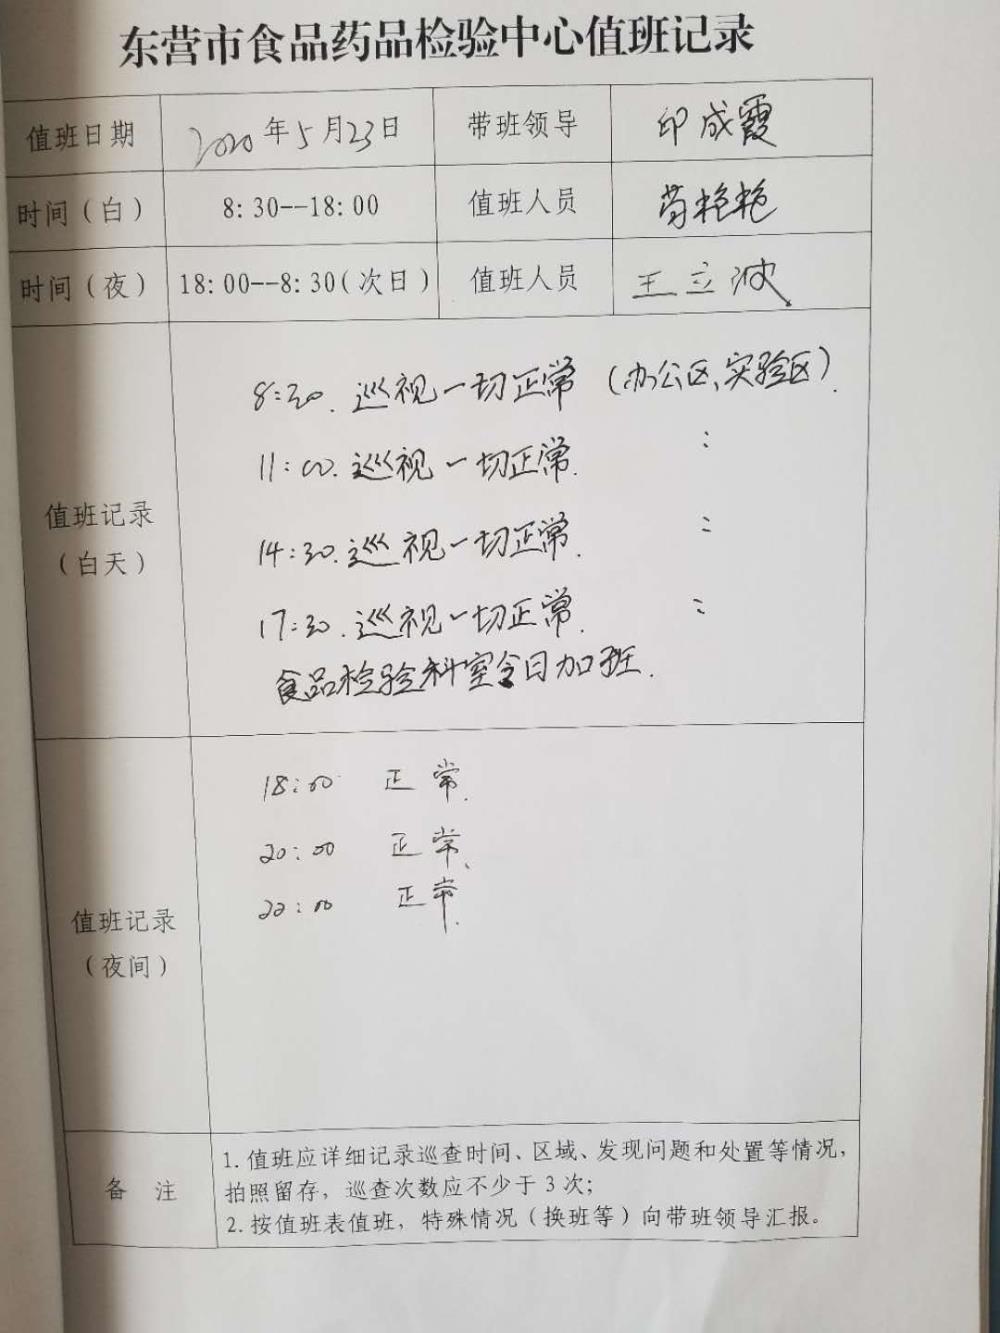 东营市食品药品检验中心值班记录
值班日期 2020年5月23日 带班领导 印成霞
时间（白） 8:30--18:00 值班人员 苟艳艳
时间（夜） 18:00--8:30(次日) 值班人员 王立波
8:30. 巡视一切正常（办公区、实验区）.
11:00. 巡视一切正常. :
值班记录
（白天）
14:30. 巡视一切正常. :
17:30. 巡视一切正常. :
食品检验科室今日加班.
18:00 正常.
20:00 正常.
22:00 正常.
值班记录
（夜间）
备 注
1. 值班应详细记录巡查时间、区域、发现问题和处置等情况，
拍照留存，巡查次数应不少于 3 次；
2. 按值班表值班，特殊情况（换班等）向带班领导汇报。